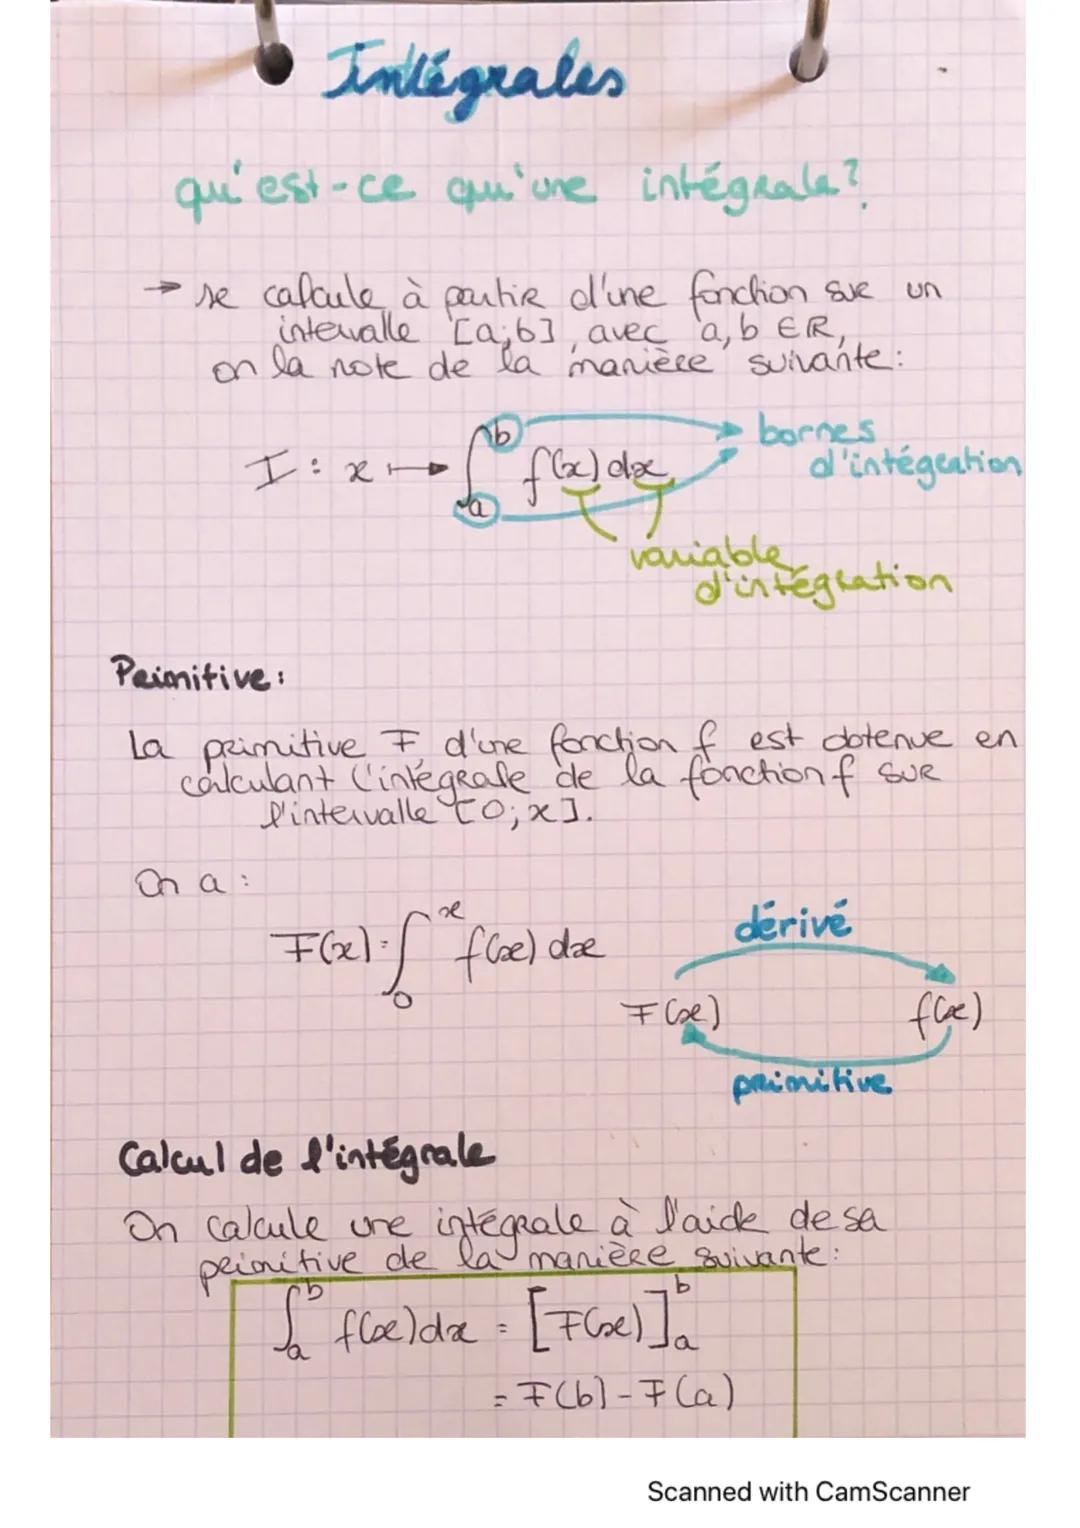 Intégrales
qu'est-ce qu'une intégrale?
→ se calcule à partir d'une fonction sur un
intervalle [a;b], avec a,b ∈ ℝ,
on la note de la manière suivante:
I : x ↦ ∫_a^b f(x) dx
bornes
d'intégration
variable
d'intégration
Primitive:
La primitive F d'une fonction f est obtenue en
calculant l'intégrale de la fonction f sur
l'intervalle [0;x].
On a :
F(x) = ∫_0^x f(x) dx
dérivé
F(x) f(x)
primitive
Calcul de l'intégrale
On calcule une intégrale à l'aide de sa
primitive de la manière suivante:
∫_a^b f(x)dx = [F(x)]_a^b
= F(b) - F(a)
Scanned with CamScanner